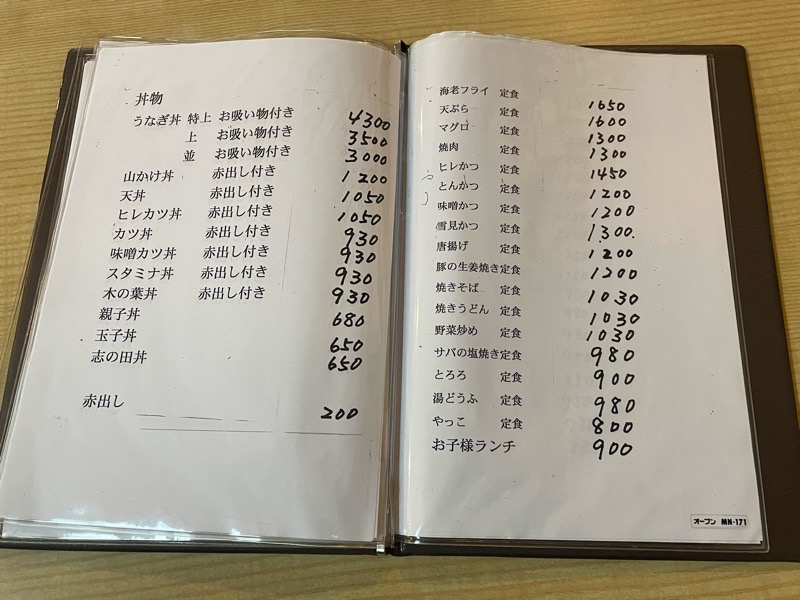 丼物
うなぎ丼 特上 お吸い物付き 4300
上 お吸い物付き 3500
並 お吸い物付き 3000
山かけ丼 赤出し付き 1200
天丼 赤出し付き 1050
ヒレカツ丼 赤出し付き 1050
カツ丼 赤出し付き 930
味噌カツ丼 赤出し付き 930
スタミナ丼 赤出し付き 930
木の葉丼 赤出し付き 930
親子丼 680
玉子丼 650
志の田丼 650
赤出し 200
海老フライ 定食 1650
天ぷら 定食 1600
マグロ 定食 1300
焼肉 定食 1300
ヒレかつ 定食 1450
とんかつ 定食 1200
味噌かつ 定食 1200
雪見かつ 定食 1300
唐揚げ 定食 1200
豚の生姜焼き定食 1200
焼きそば 定食 1030
焼きうどん 定食 1030
野菜炒め 定食 1030
サバの塩焼き定食 980
とろろ 定食 900
湯どうふ 定食 980
やっこ 定食 800
お子様ランチ 900
オープン MN-171